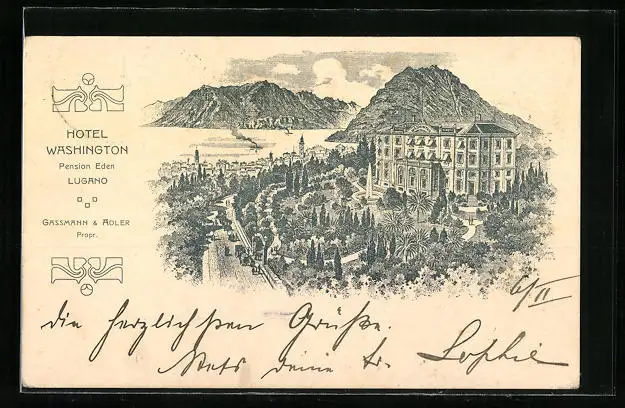 HOTEL
WASHINGTON
Pension Eden
LUGANO
GASSMANN & ADLER
Propr.
6/II
die herzlichsten Grüße.
Stets deine tr. Sophie